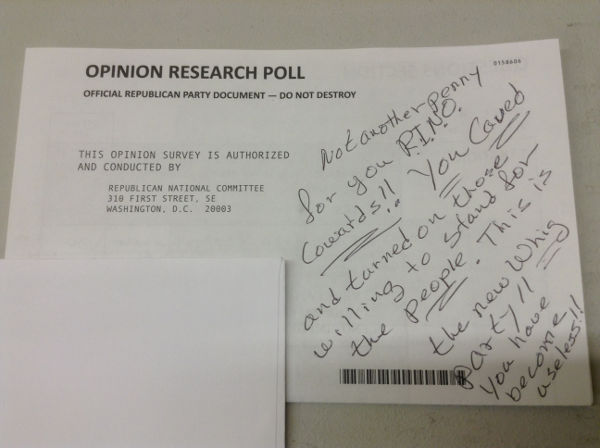 0158606
OPINION RESEARCH POLL
OFFICIAL REPUBLICAN PARTY DOCUMENT — DO NOT DESTROY
THIS OPINION SURVEY IS AUTHORIZED
AND CONDUCTED BY
REPUBLICAN NATIONAL COMMITTEE
310 FIRST STREET, SE
WASHINGTON, D.C. 20003
Not another penny
for you R.I.N.O.
Cowards!! You Caved
and turned on those
willing to stand for
the People. This is
the new Whig
Party!!
You have
become
useless!!